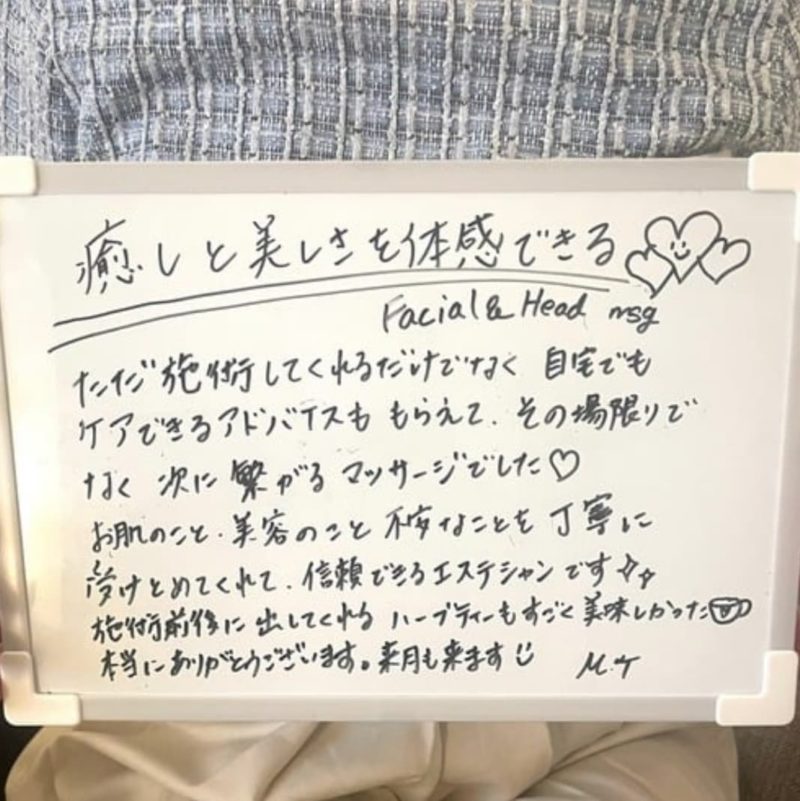 癒しと美しさを体感できる
Facial & Head msg
ただ施術してくれるだけでなく 自宅でも
ケアできるアドバイスも もらえて、その場限りで
なく 次に 繋がる マッサージでした♡
お肌のこと、美容のこと 不安なことを 丁寧に
受けとめてくれて、信頼できるエステシャンです✨
施術前後に 出してくれる ハーブティーもすごく 美味しかった
本当にありがとうございます。来月も来ます
M.T